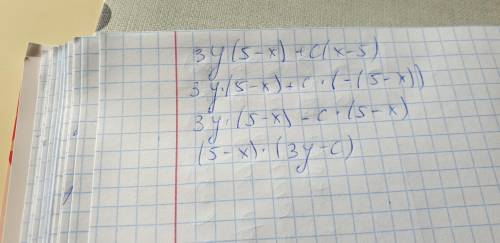 3y(5-x)+c(x-5)
3y·(5-x)+c·(-(5-x))
3y·(5-x)-c·(5-x)
(5-x)·(3y-c)